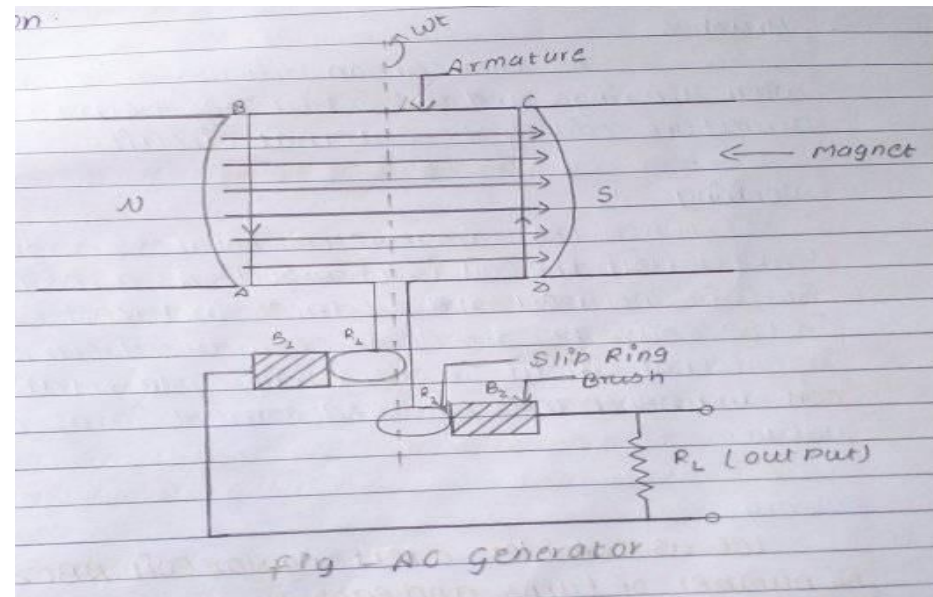 on.
wt
Armature
B C
Magnet
N S
A D
B₁ R₁
Slip Ring
R₂ B₂ Brush
R_L (output)
fig - AC Generator